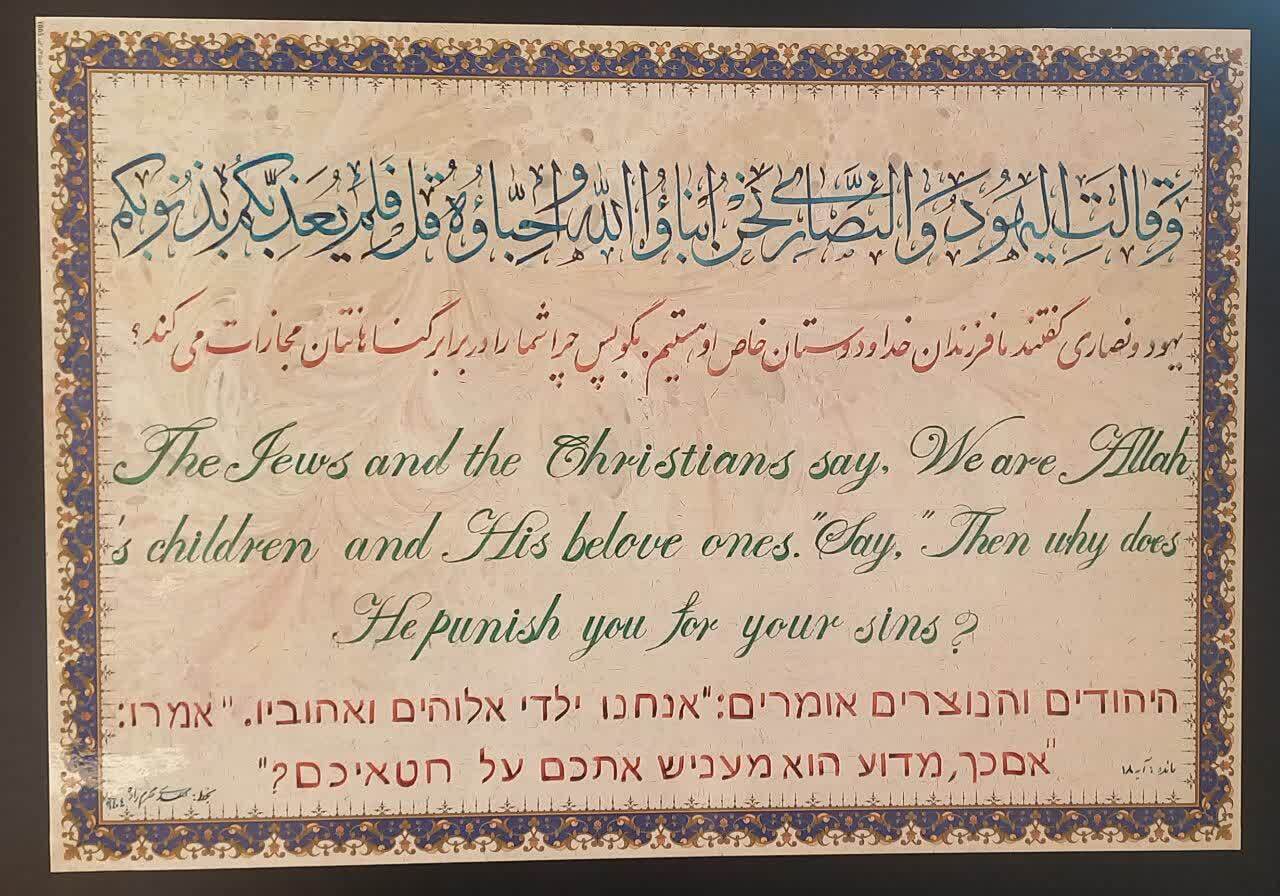 وَقالَتِ اليَهُودُ وَالنَّصَارى نَحْنُ اَبناؤُا اللهِ وَاَحِبّاؤُهُ قُلْ فَلِمَ يُعَذِّبُكُم بِذُنُوبِكُم
یهود و نصاری گفتند ما فرزندان خدا و دوستان خاص او هستیم. بگو پس چرا شما را در برابر گناهانتان مجازات می کند؟
The Jews and the Christians say, We are Allah
's children and His belove ones."Say, "Then why does
He punish you for your sins?
היהודים והנוצרים אומרים:"אנחנו ילדי אלוהים ואהוביו. "אמרו:
"אםכך, מדוע הוא מעניש אתכם על חטאיכם?"
مائده: آیه ۱۸
بخط: